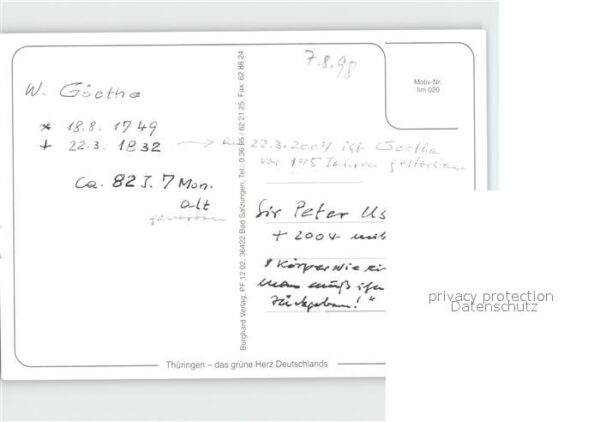 7.8.98
Motiv-Nr.
Ilm 020
W. Goethe
* 18.8. 1749
+ 22.3. 1832
22.3.2007 ist Goethe
vor 175 Jahren gestorben
ca. 82 J. 7 Mon.
alt
gestorben
Burghard Verlag, PF 12 02, 36422 Bad Salzungen, Tel.: 0 36 95 / 62 21 25, Fax: 62 88 24
Sir Peter Us
+ 2004 mit
"Körper wie ei
man muß ihn
zurückgeben!"
Thüringen – das grüne Herz Deutschlands
privacy protection
Datenschutz